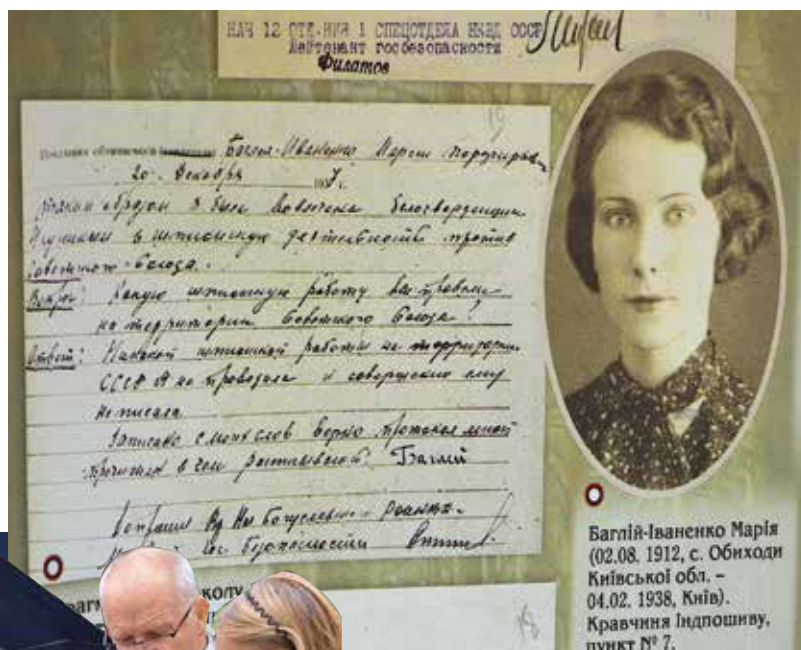 НАЧ 12 ОТД-НИЯ 1 СПЕЦОТДЕЛА НКВД СССР
Лейтенант госбезопасности
Филатов
19
Баглий-Иваненко Марии Порфирьев
20 Декабря 1937 г.
Таким образом я была вовлечена белогвардейцем
в шпионскую деятельность против
Советского Союза.
Вопрос: Какую шпионскую работу вы провели
на территории Советского Союза?
Ответ: Никакой шпионской работы на территории
СССР я не проводила и совершенно ему
не писала.
Записано с моих слов верно протокол мной
прочитан в чем расписываюсь. Баглий
Допросил
Гос. Безопасности
Баглій-Іваненко Марія
(02.08. 1912, с. Обиходи
Київської обл. –
04.02. 1938, Київ).
Кравчиня Індпошиву,
пункт № 7.
колу
18